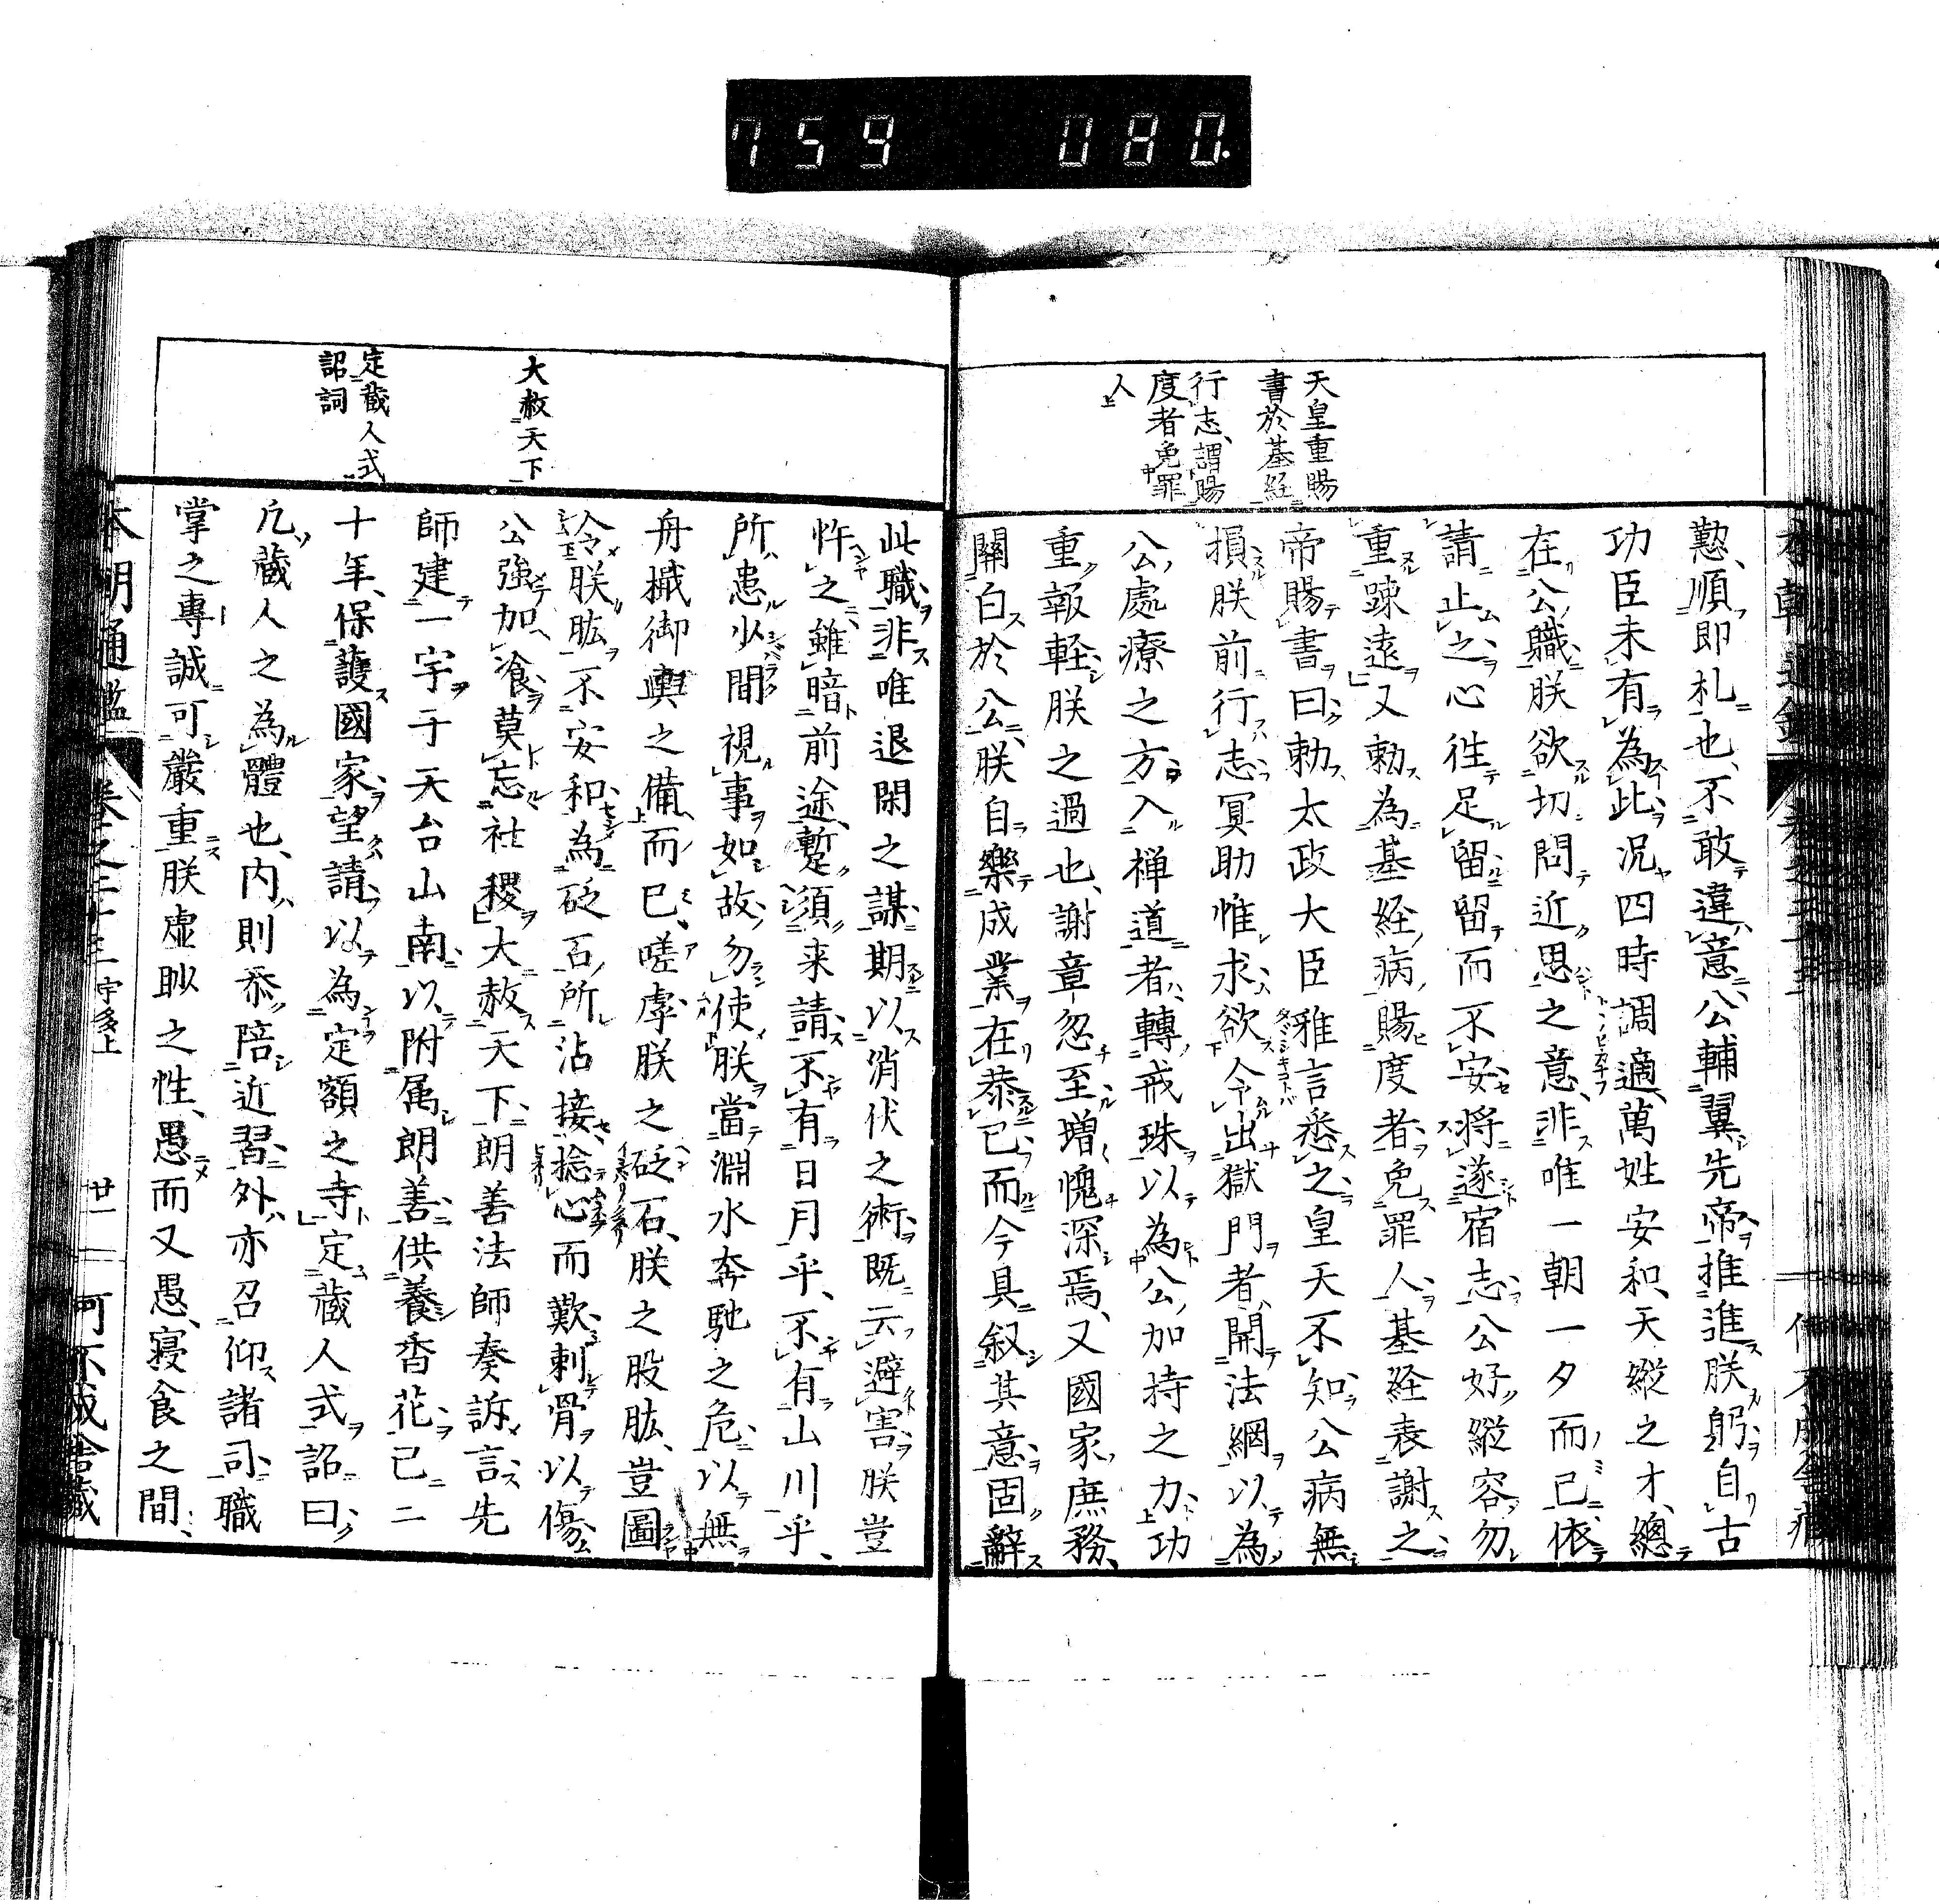 759 080.
天皇重賜
書於基経
行志、謂賜
度者免罪
人
懃、順即札也、不敢違意、公輔翼先帝推進朕躬自古
功臣未有為此、況四時調適、萬姓安和、天縦之才、總
在公職、朕欲切問近思之意、非唯一朝一夕而已、依
請止之、心徃足留、留而不安、将遂宿志、公好縦容、勿
重踈遠、又勅為基経病、賜度者、免罪人、基経表謝之、
帝賜書曰、勅太政大臣、雅言悉之、皇天不知、公病無
損、朕前行志、冥助惟求、欲令出獄門者、開法綱以為
公處療之方、入禅道者、轉戒珠以為公加持之力、功
重報軽、朕之過也、謝章忽至、増愧深焉、又國家庶務、
關白於公、朕自樂成業、在恭已而今具叙其意、固辭
大赦天下
定蔵人式
詔詞
此職、非唯退閑之謀、期以消伏之術、既云避害、朕豈
忤之、雖暗前途、蹔須来請、不有日月乎、不有山川乎、
所患少間、視事如故、勿使朕當淵水奔馳之危、以無
舟檝御輿之備而已、嗟虖朕之砭石、朕之股肱、豈圖
令朕肱不安和、為砭石所沾接、捻心而歎、刺骨以傷、
公強加飡、莫忘社稷、大赦天下、朗善法師奏訴言、先
師建一宇于天台山南、以附属朗善、供養香花、已二
十年、保護國家、望請以為定額之寺、定蔵人式、詔曰、
凡蔵人之為體也、内則忝陪近習、外亦召仰諸司、職
掌之專、誠可嚴重、朕虚眇之性、愚而又愚、寝食之間、
本朝通鑑 巻之二十三 宇多上 廿一